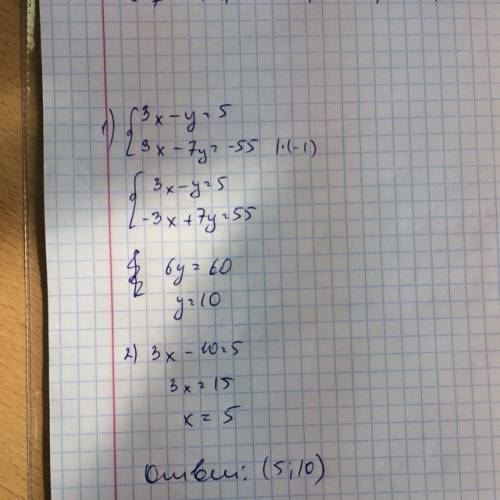 1) { 3x - y = 5
3x - 7y = -55 | · (-1)
{ 3x - y = 5
-3x + 7y = 55
{ 6y = 60
y = 10
2) 3x - 10 = 5
3x = 15
x = 5
Ответ: (5; 10)